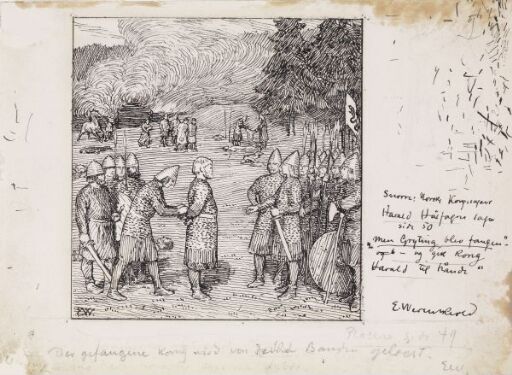 EW
Snorre: Norske Kongesagaer
Harald Hårfagres saga
side 50
"men Gryting blev fangen"
og gik Kong
Harald til Haande"
E. Werenskiold
49
Der gefangene König wird von Banden geloest.
EW